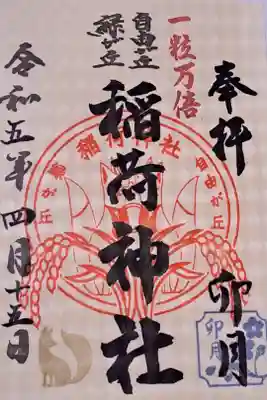 奉拝
卯月
卯月
一粒万倍
自由が丘
緑が丘
稲荷神社
稲荷神社
自由が丘
緑が丘
令和五年四月十五日